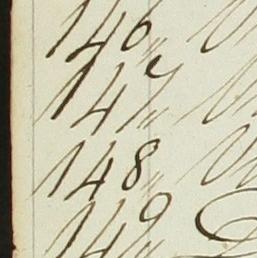 146,,
147,,
148,,
149,,